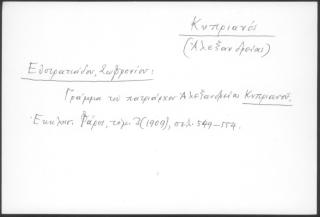 Κυπριανός
(Ἀλεξανδρείας)
Εὐστρατιάδου, Σωφρονίου:
Γράμμα τοῦ πατριάρχου Ἀλεξανδρείας Κυπριανοῦ,
Ἐκκλησ. Φάρος, τόμ. (1909), σελ. 549-554.